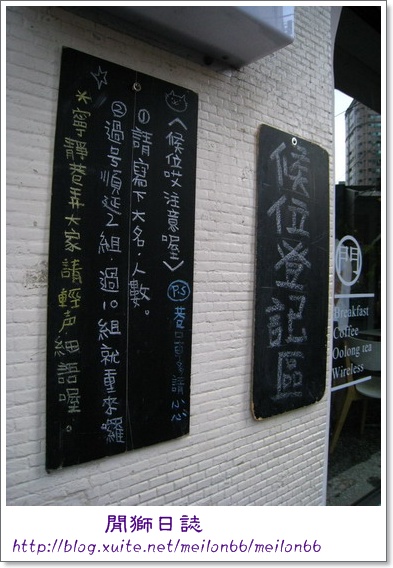 <候位哎注意喔>
①請寫下大名,人數。
②過号順延2組,過10組就重來囉
*寧靜巷弄大家請輕声細語喔。
P.S
候位登記區
門
Breakfast
Coffee
Oolong tea
Wireless
閒獅日誌
http://blog.xuite.net/meilon66/meilon66